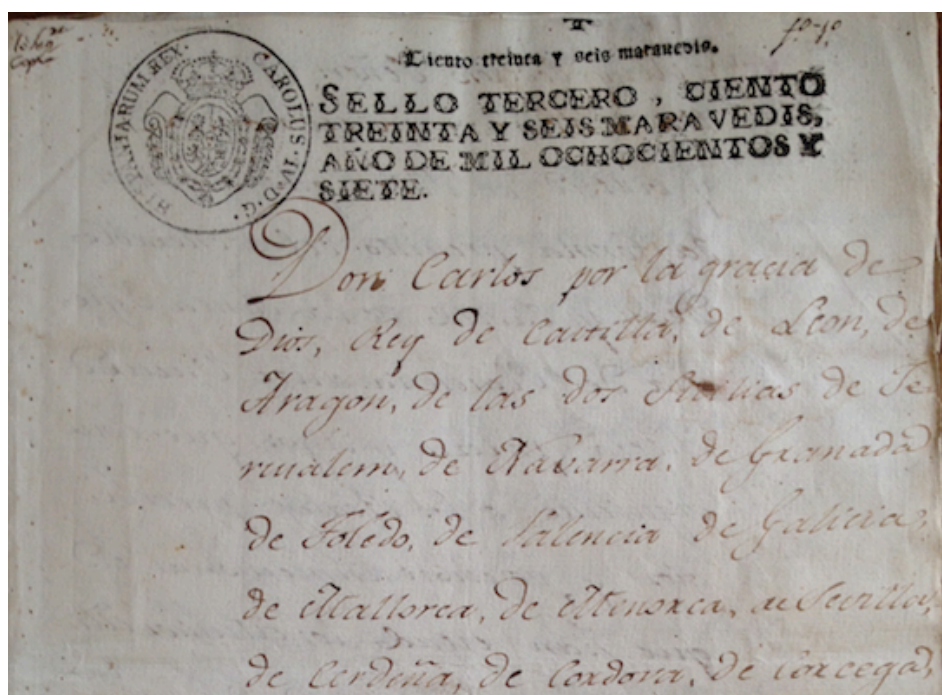 Ciento treinta y seis maravedis.
HISPANIARUM REX. CAROLUS.IV.D.G.
SELLO TERCERO, CIENTO
TREINTA Y SEIS MARAVEDIS,
AÑO DE MIL OCHOCIENTOS Y
SIETE.
Don Carlos por la gracia de
Dios, Rey de Castilla, de Leon, de
Aragon, de las dos Sicilias de Je
rusalem, de Navarra, de Granada
de Toledo, de Valencia de Galicia,
de Mallorca, de Menorca, de Sevilla,
de Cerdeña, de Cordova, de Corcega,